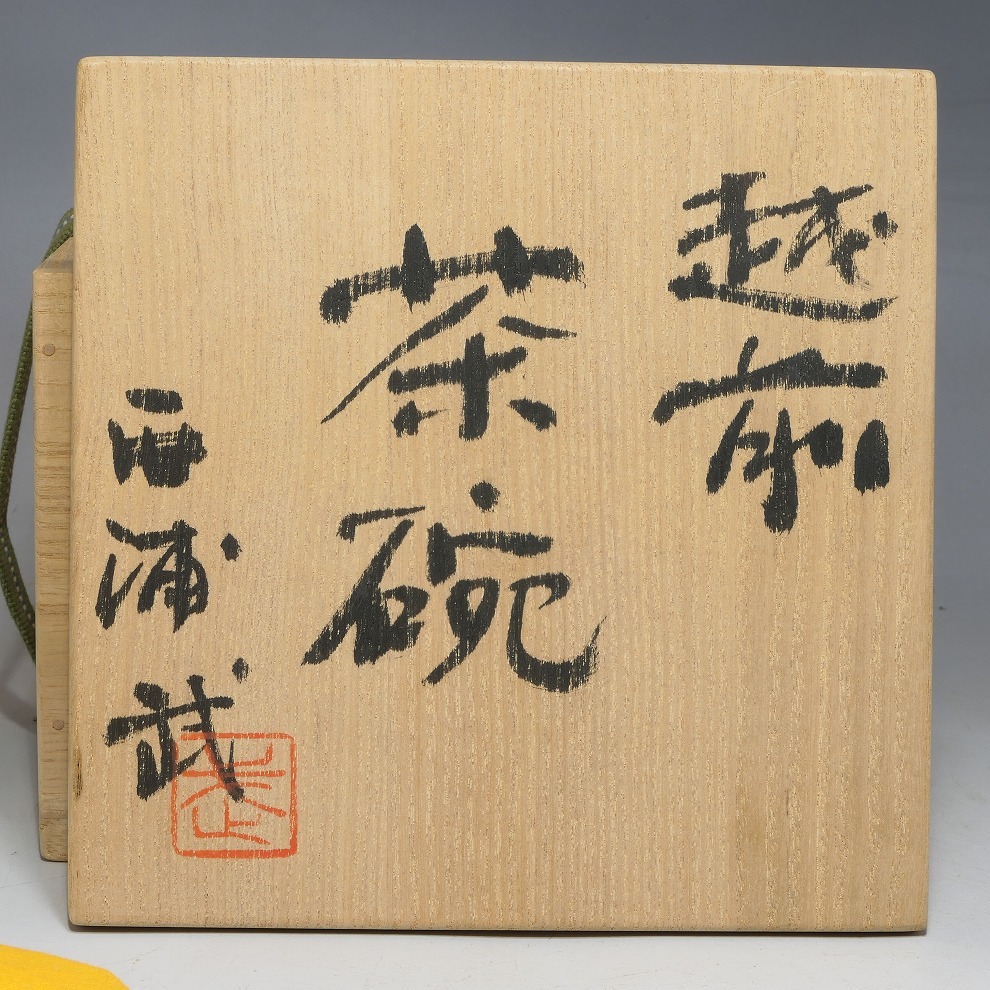 越前
茶碗
西浦武
武